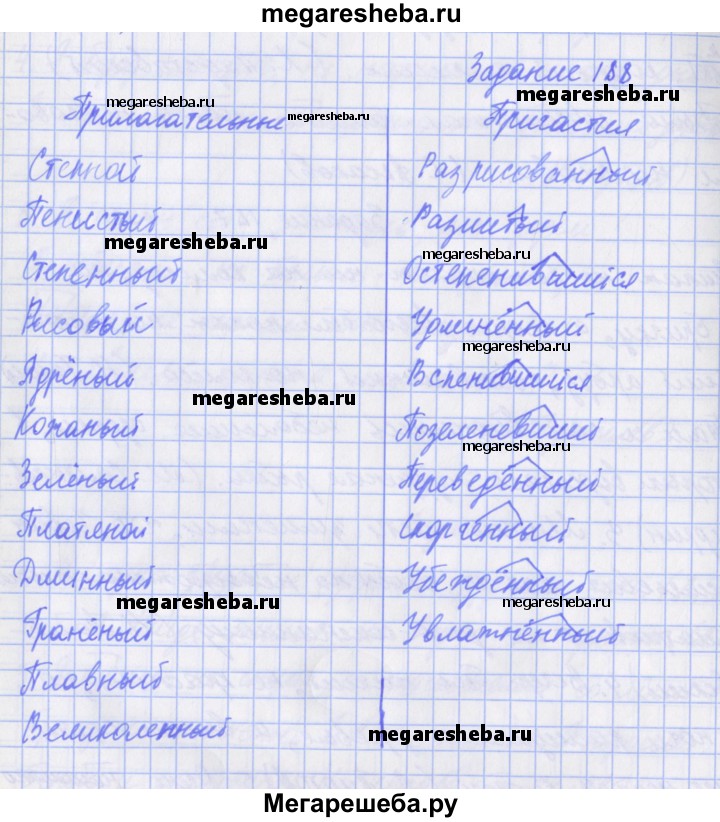 megaresheba.ru
Задание 188
megaresheba.ru
megaresheba.ru
Прилагательные
megaresheba.ru
Причастия
Степной
Разрисованный
Пенистый
Разшитый
megaresheba.ru
megaresheba.ru
Степенный
Остепенившийся
Рисовый
Удлинённый
megaresheba.ru
Ядрёный
Вспенившийся
megaresheba.ru
Кожаный
Позеленевший
megaresheba.ru
Зелёный
Переведённый
Платяной
Скорченный
Длинный
Убеждённый
megaresheba.ru
megaresheba.ru
Гранёный
Увлажнённый
Плавный
Великолепный
megaresheba.ru
Мегарешеба.ру